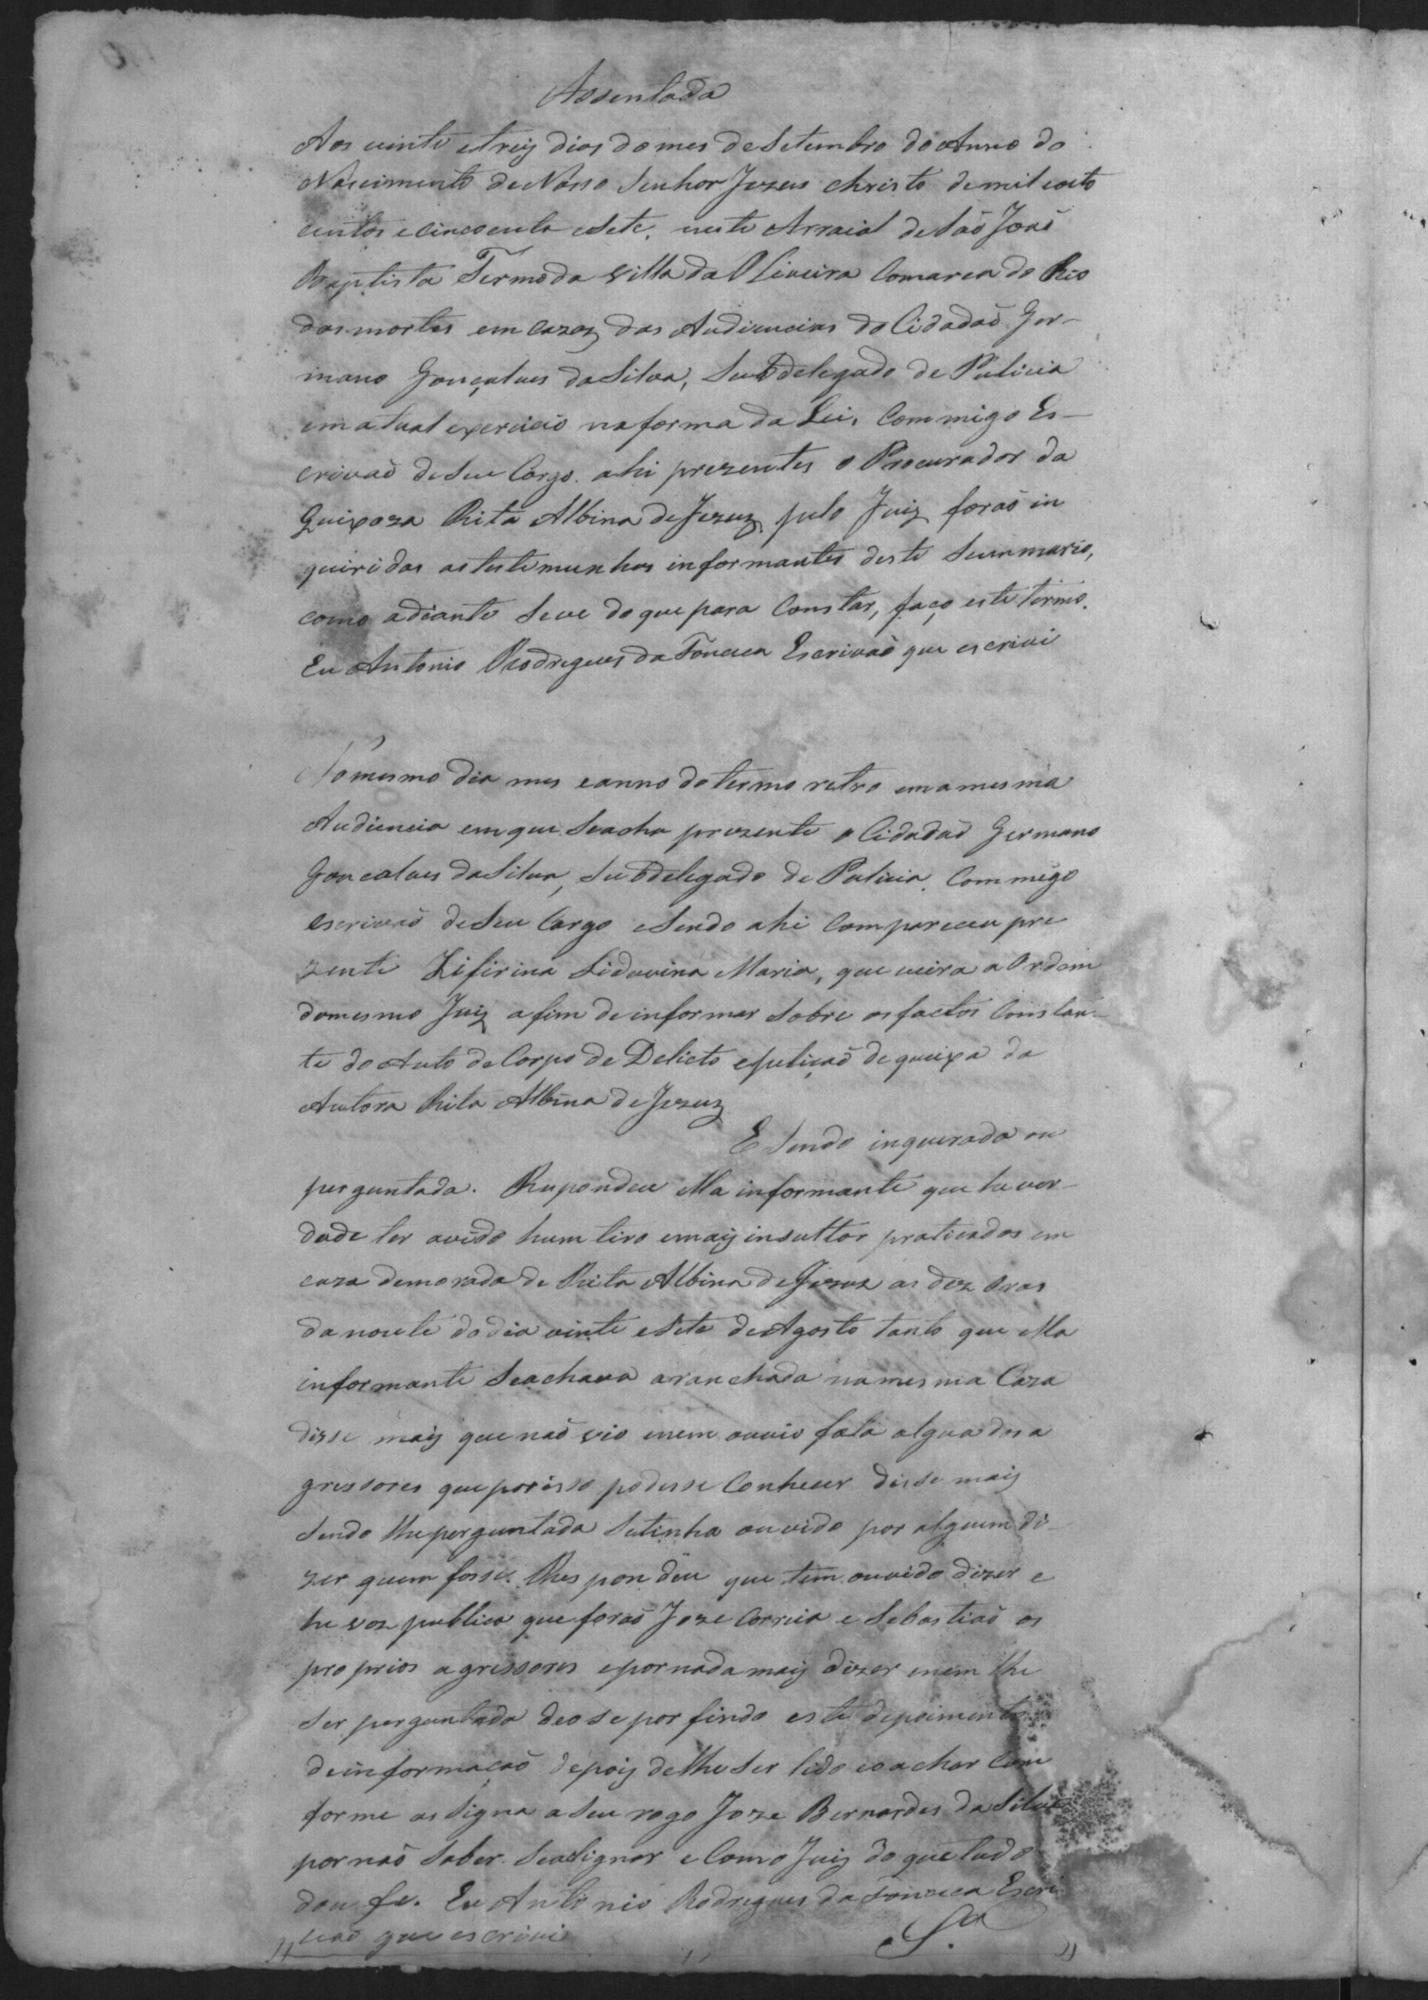 Assentada
Aos vinte e treiz dias do mes de Setembro do Anno do
Nascimento de Nosso Senhor Jezus Christo de mil e oito
centos e cincoenta e Sete, neste Arraial de São João
Baptista Termo da Villa da Oliveira Comarca do Rio
das mortes em cazaz das Audiencias do Cidadaõ Ger-
mano Gonçalves da Silva, Subdelegado de Policia
em atual exercicio na forma da Lei, Commigo Es-
crivaõ de Seu Cargo. ahi prezentes o Procurador da
Queixoza Rita Albina de Jezuz, pelo Juiz foraõ in
queiridas as testemunhas informantes deste Summario,
como adiante Se ve do que para Constar, faço este termo.
Eu Antonio Rodrigues da Fonceca Escrivaõ que escrivi
No mesmo dia mes e anno do termo retro em a mesma
Audiencia em que Se acha prezente o Cidadaõ Germano
Goncalves da Silva, Subdelegado de Policia. Commigo
escrivaõ de Seu Cargo e Sendo ahi Compareceu pre
zente Zifirina Lidovina Maria, que veira a Ordem
do mesmo Juiz a fim de informar Sobre os factos Constan-
te do Auto de Corpo de Delicto e petiçaõ de queixa da
Autora Rita Albina de Jezuz
E Sendo inquerada ou
perguntada. Rupondeu Ella informante que he ver-
dade ter avido hum tiro e maiz insultos praticados em
caza de morada de Rita Albina de Jezuz as dez Oras
da noute do dia vinte e Sete de Agosto tanto que Ella
informante Se achava aranchada na mesma Caza
disse maiz que naõ vio e nem ouvio fala algua dos a
gressores que por isso podesse Conhecer disse maiz
Sendo lhe perguntada Se tinha ouvido por alguem di-
zer quem fosse. Respondeu que tem ouvido dizer e
he voz publica que foraõ Joze Correia e Sebastiaõ os
proprios agressores e por nada maiz dizer e nem lhe
Ser perguntado deo se por findo este depoimento
de informaçaõ depoiz de lhe Ser lido e o achar Com
forme assigna a Seu rogo Joze Bernardes da Silva
por naõ Saber Se assignar e Como Juiz do que tudo
dou fe. Eu Antonio Rodrigues da Fonceca Escri
vaõ que escrivi
Sa